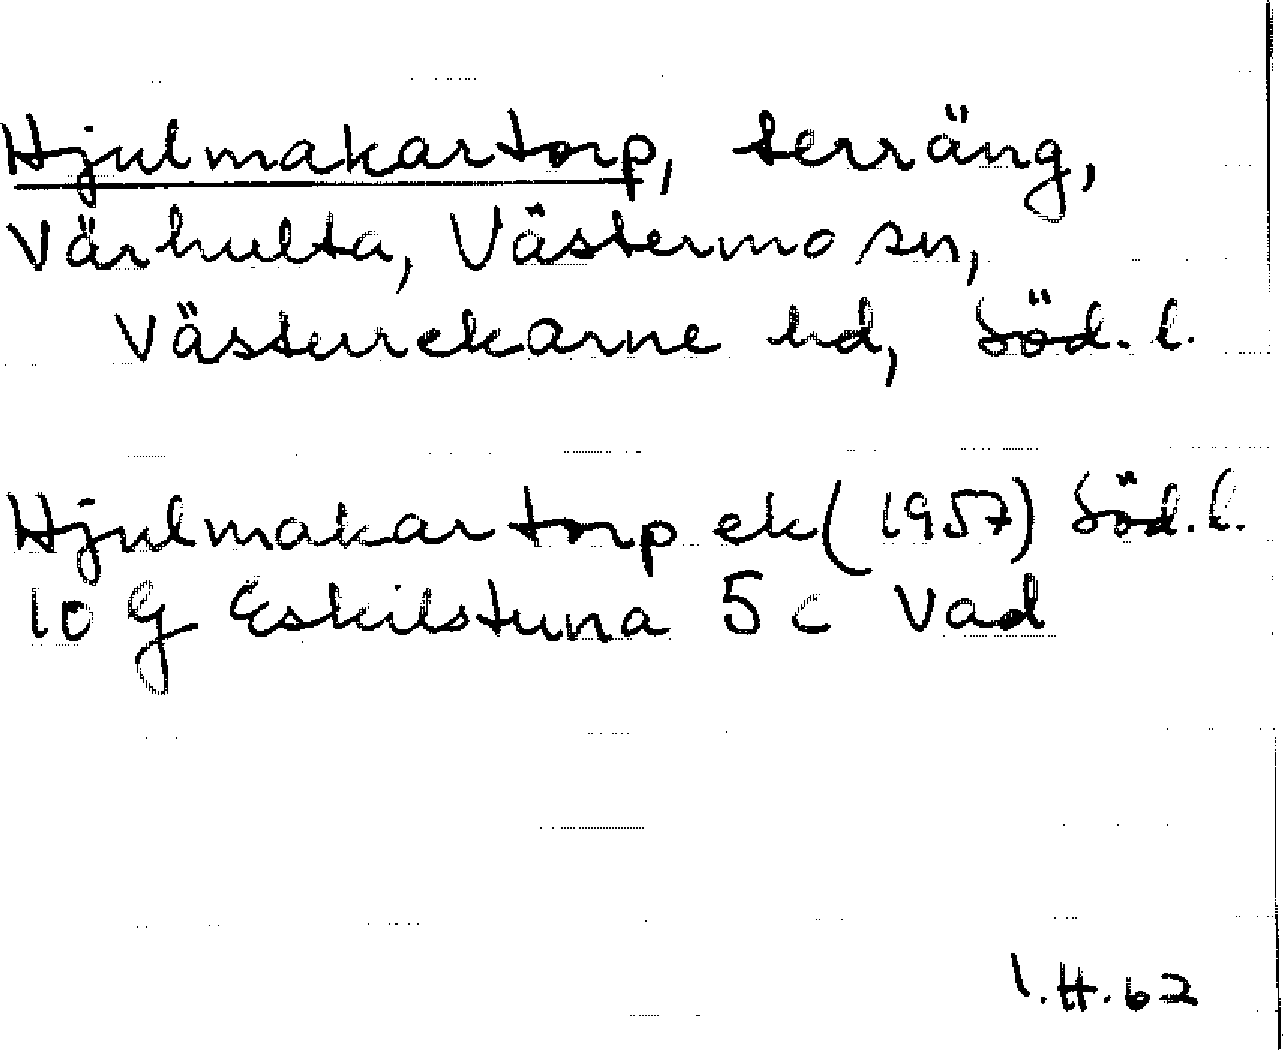 Hjulmakartorp, terräng,
Värhulta, Västermo sn,
Västerrekarne hd, Söd. l.
Hjulmakartorp ek (1957) Söd. l.
10 G Eskilstuna 5 c Vad
I. H. 62